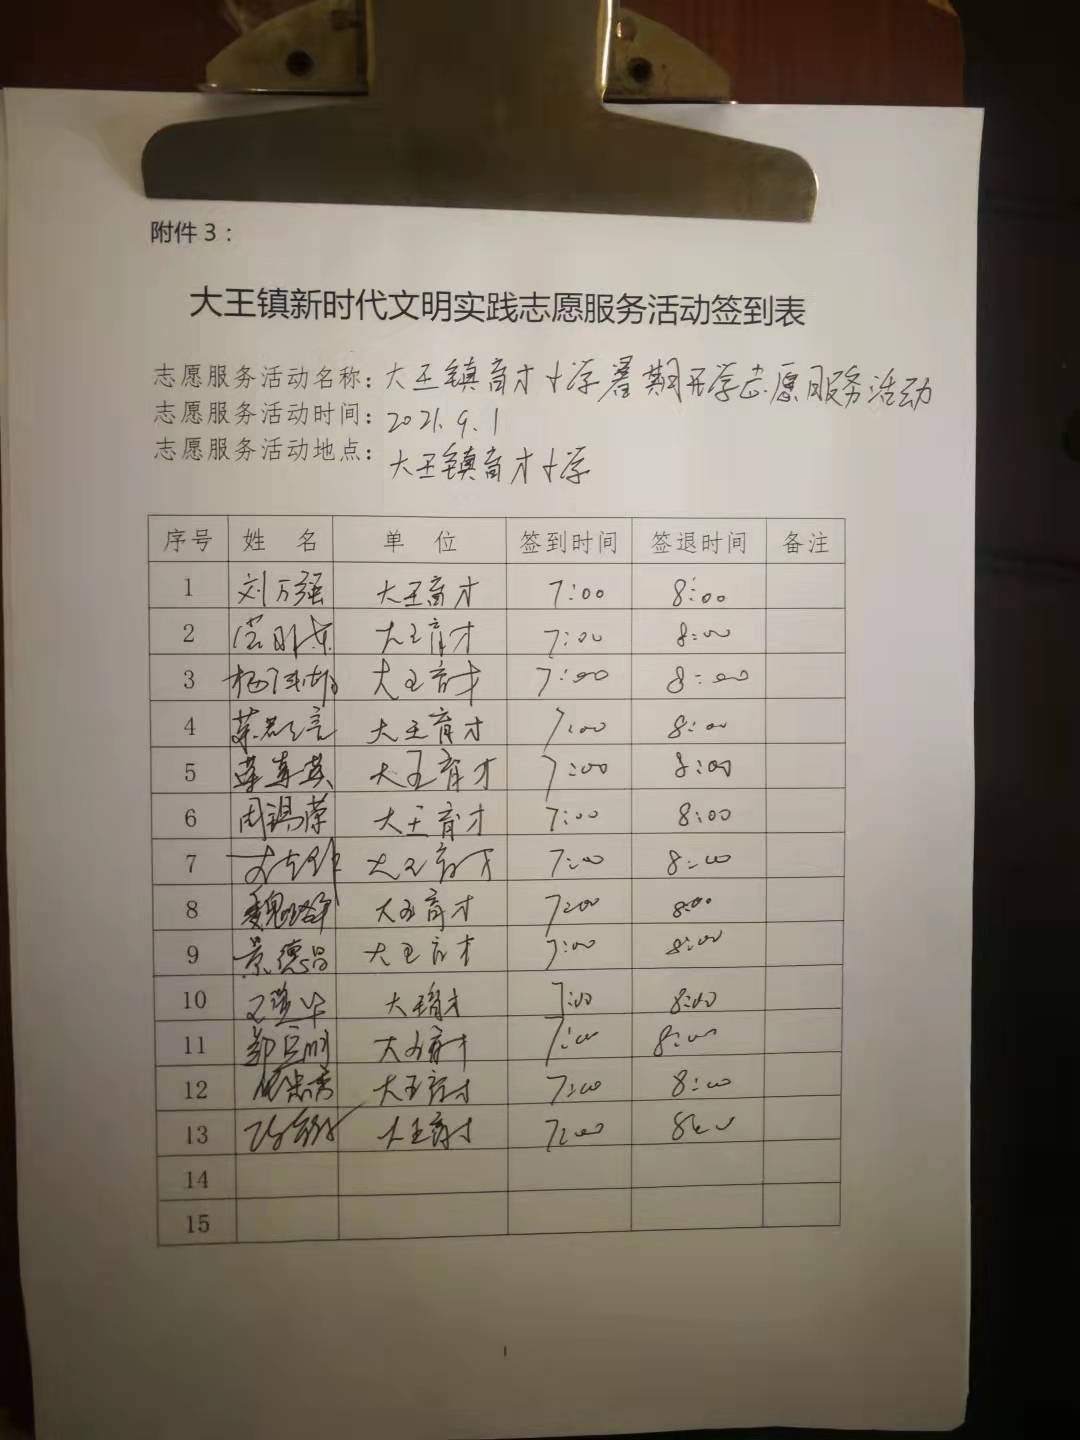 附件 3：
大王镇新时代文明实践志愿服务活动签到表
志愿服务活动名称：大王镇育才小学暑期开学志愿服务活动
志愿服务活动时间：2021.9.1
志愿服务活动地点：大王镇育才小学
序号 姓 名 单 位 签到时间 签退时间 备注
1 刘万强 大王育才 7:00 8:00
2 大王育才 7:00 8:00
3 大王育才 7:00 8:00
4 大王育才 7:00 8:00
5 大王育才 7:00 8:00
6 周锡荣 大王育才 7:00 8:00
7 大王育才 7:00 8:00
8 大王育才 7:00 8:00
9 景德昌 大王育才 7:00 8:00
10 大王育才 7:00 8:00
11 大王育才 7:00 8:00
12 大王育才 7:00 8:00
13 大王育才 7:00 8:00
14
15
1